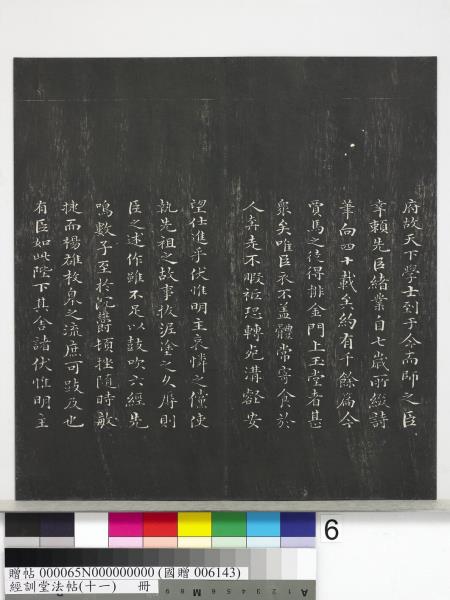 府故天下學士到于今而師之臣
幸賴先臣緒業自七歲所綴詩
筆向四十載矣約有千餘篇今
賈馬之徒得排金門上玉堂者甚
衆矣唯臣衣不盖體常寄食於
人奔走不暇秖恐轉死溝壑安
望仕進乎伏惟明主哀憐之儻使
執先祖之故事拔泥塗之久辱則
臣之述作雖不足以鼓吹六經先
鳴數子至於沉欝頓挫隨時敏
捷而楊雄枚皋之流庶可跂及也
有臣如此陛下其舍諸伏惟明主
6
贈帖 000065N000000000 (國贈 006143)
經訓堂法帖(十一) 冊
A 1 2 3 4 5 6 M 8 9